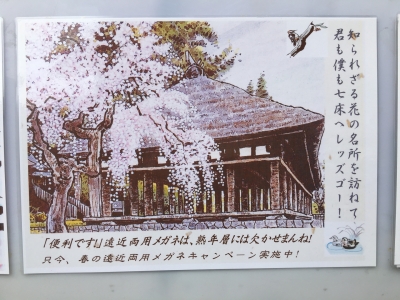 知られざる花の名所を訪ねて
君も僕も七床へレッズゴー！
「便利です!」遠近両用メガネは、熟年層には欠かせませんね!
只今、春の遠近両用メガネキャンペーン実施中！